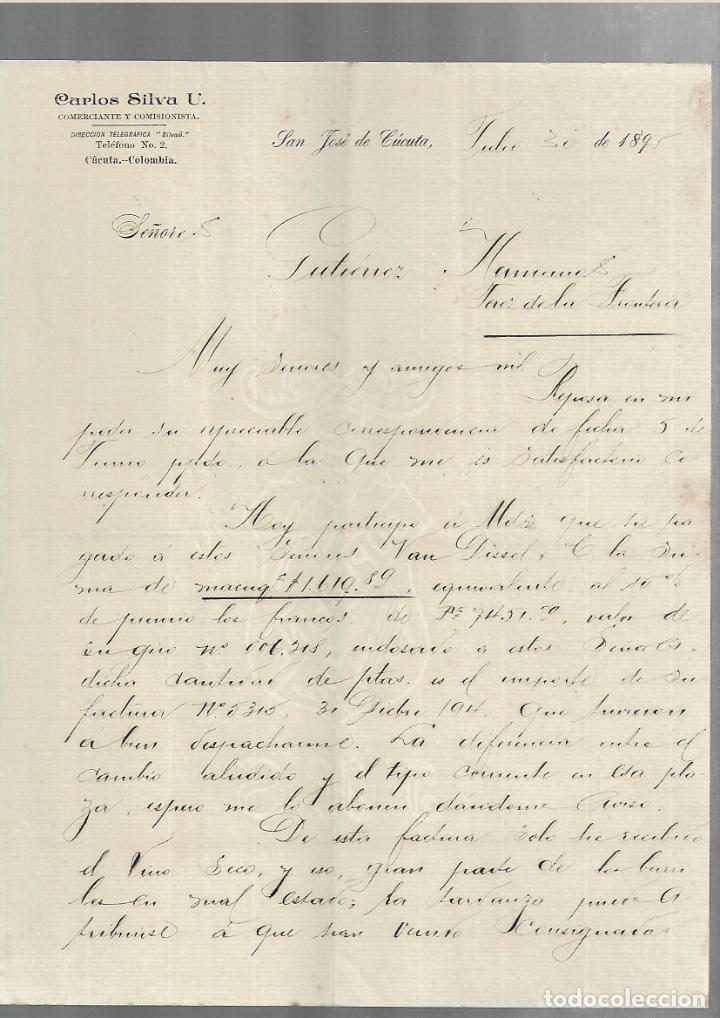 Carlos Silva U.
COMERCIANTE Y COMISIONISTA.
DIRECCION TELEGRAFICA "Silvaú."
Teléfono No. 2.
Cúcuta.--Colombia.
San José de Cúcuta, Julio 30 de 1895
Señores
Gutiérrez Hermanos
Jerez de la Frontera
Muy Señores y amigos
Reposa en mi
poder su apreciable correspondencia de fecha 5 de
Junio ppdo., a la que me es satisfactorio co
rresponder.
Hoy participo á Uds que he pa
gado á estos Señores Van Dissel, & C la su
ma de 1.610.89, equivalente al 10 %
de premio los francos, de Ps 7431.70, valor de
su giro Nº 606,318, endosado a estos Señores,
dicha cantidad de ptas. es el importe de su
factura Nº 5315, 31 Dicbre 194, que tuvieron
á bien despacharme. La diferencia entre el
cambio aludido y el tipo corriente en esa pla
za, espero me lo abonen dándome aviso.
De esta factura solo he recibido
el Vino Seco, y eso, gran parte de los barri
les en mal estado; la tardanza puede a
tribuirse á que han venido consignadas
todocoleccion.net